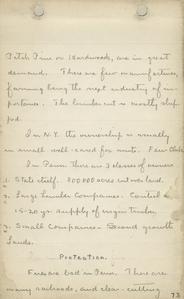 Pitch Pine or Hardwoods, are in great
demand. There are few manufactures,
farming being the next industry of im-
portance. The lumber cut is mostly ship-
ped.
In N.Y. the ownership is usually
in small well-cared for units.
In Penn. there are 3 classes of owners
1. State itself. 800 000 acres cut over land.
2. Large Lumber Companies. Control a
15-20 yr. supply of virgin timber.
3. Small Companies. Second growth
lands.
Protection.
Fires are bad in Penn. There are
many railroads, and clear-cutting
73